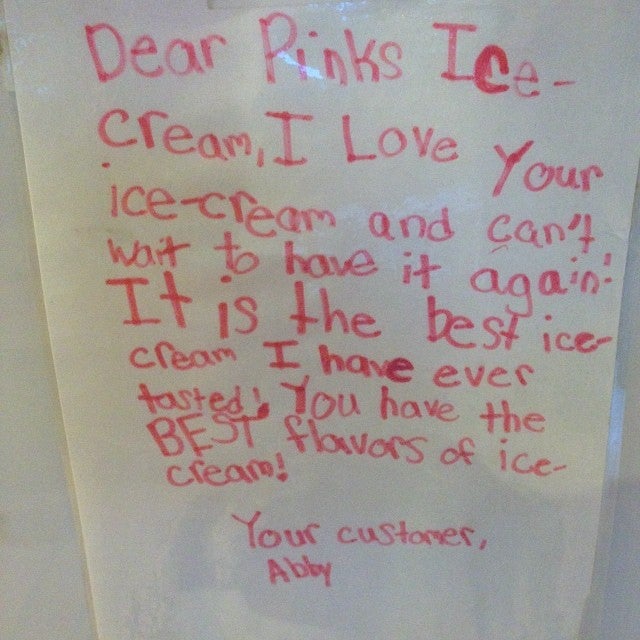 Dear Pinks Ice-
cream, I Love Your
ice-cream and can't
wait to have it again!
It is the best ice-
cream I have ever
tasted! You have the
BEST flavors of ice-
cream!
Your customer,
Abby